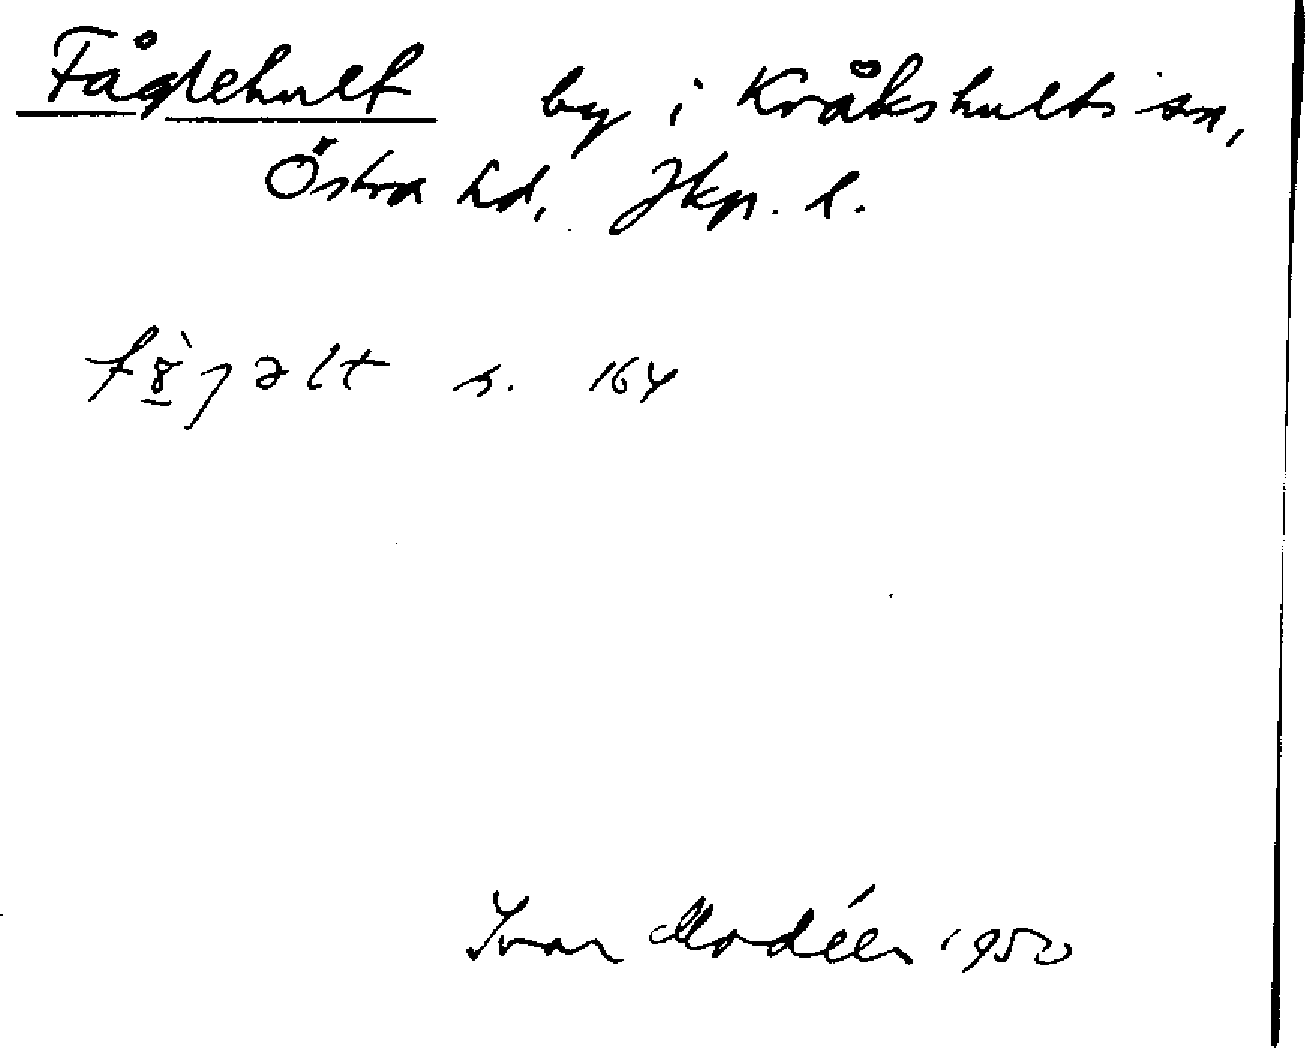 Fåglehult by i Kråkshults sn,
Östra hd. Jkp. l.
s. 164
Ivar Modéer 1950